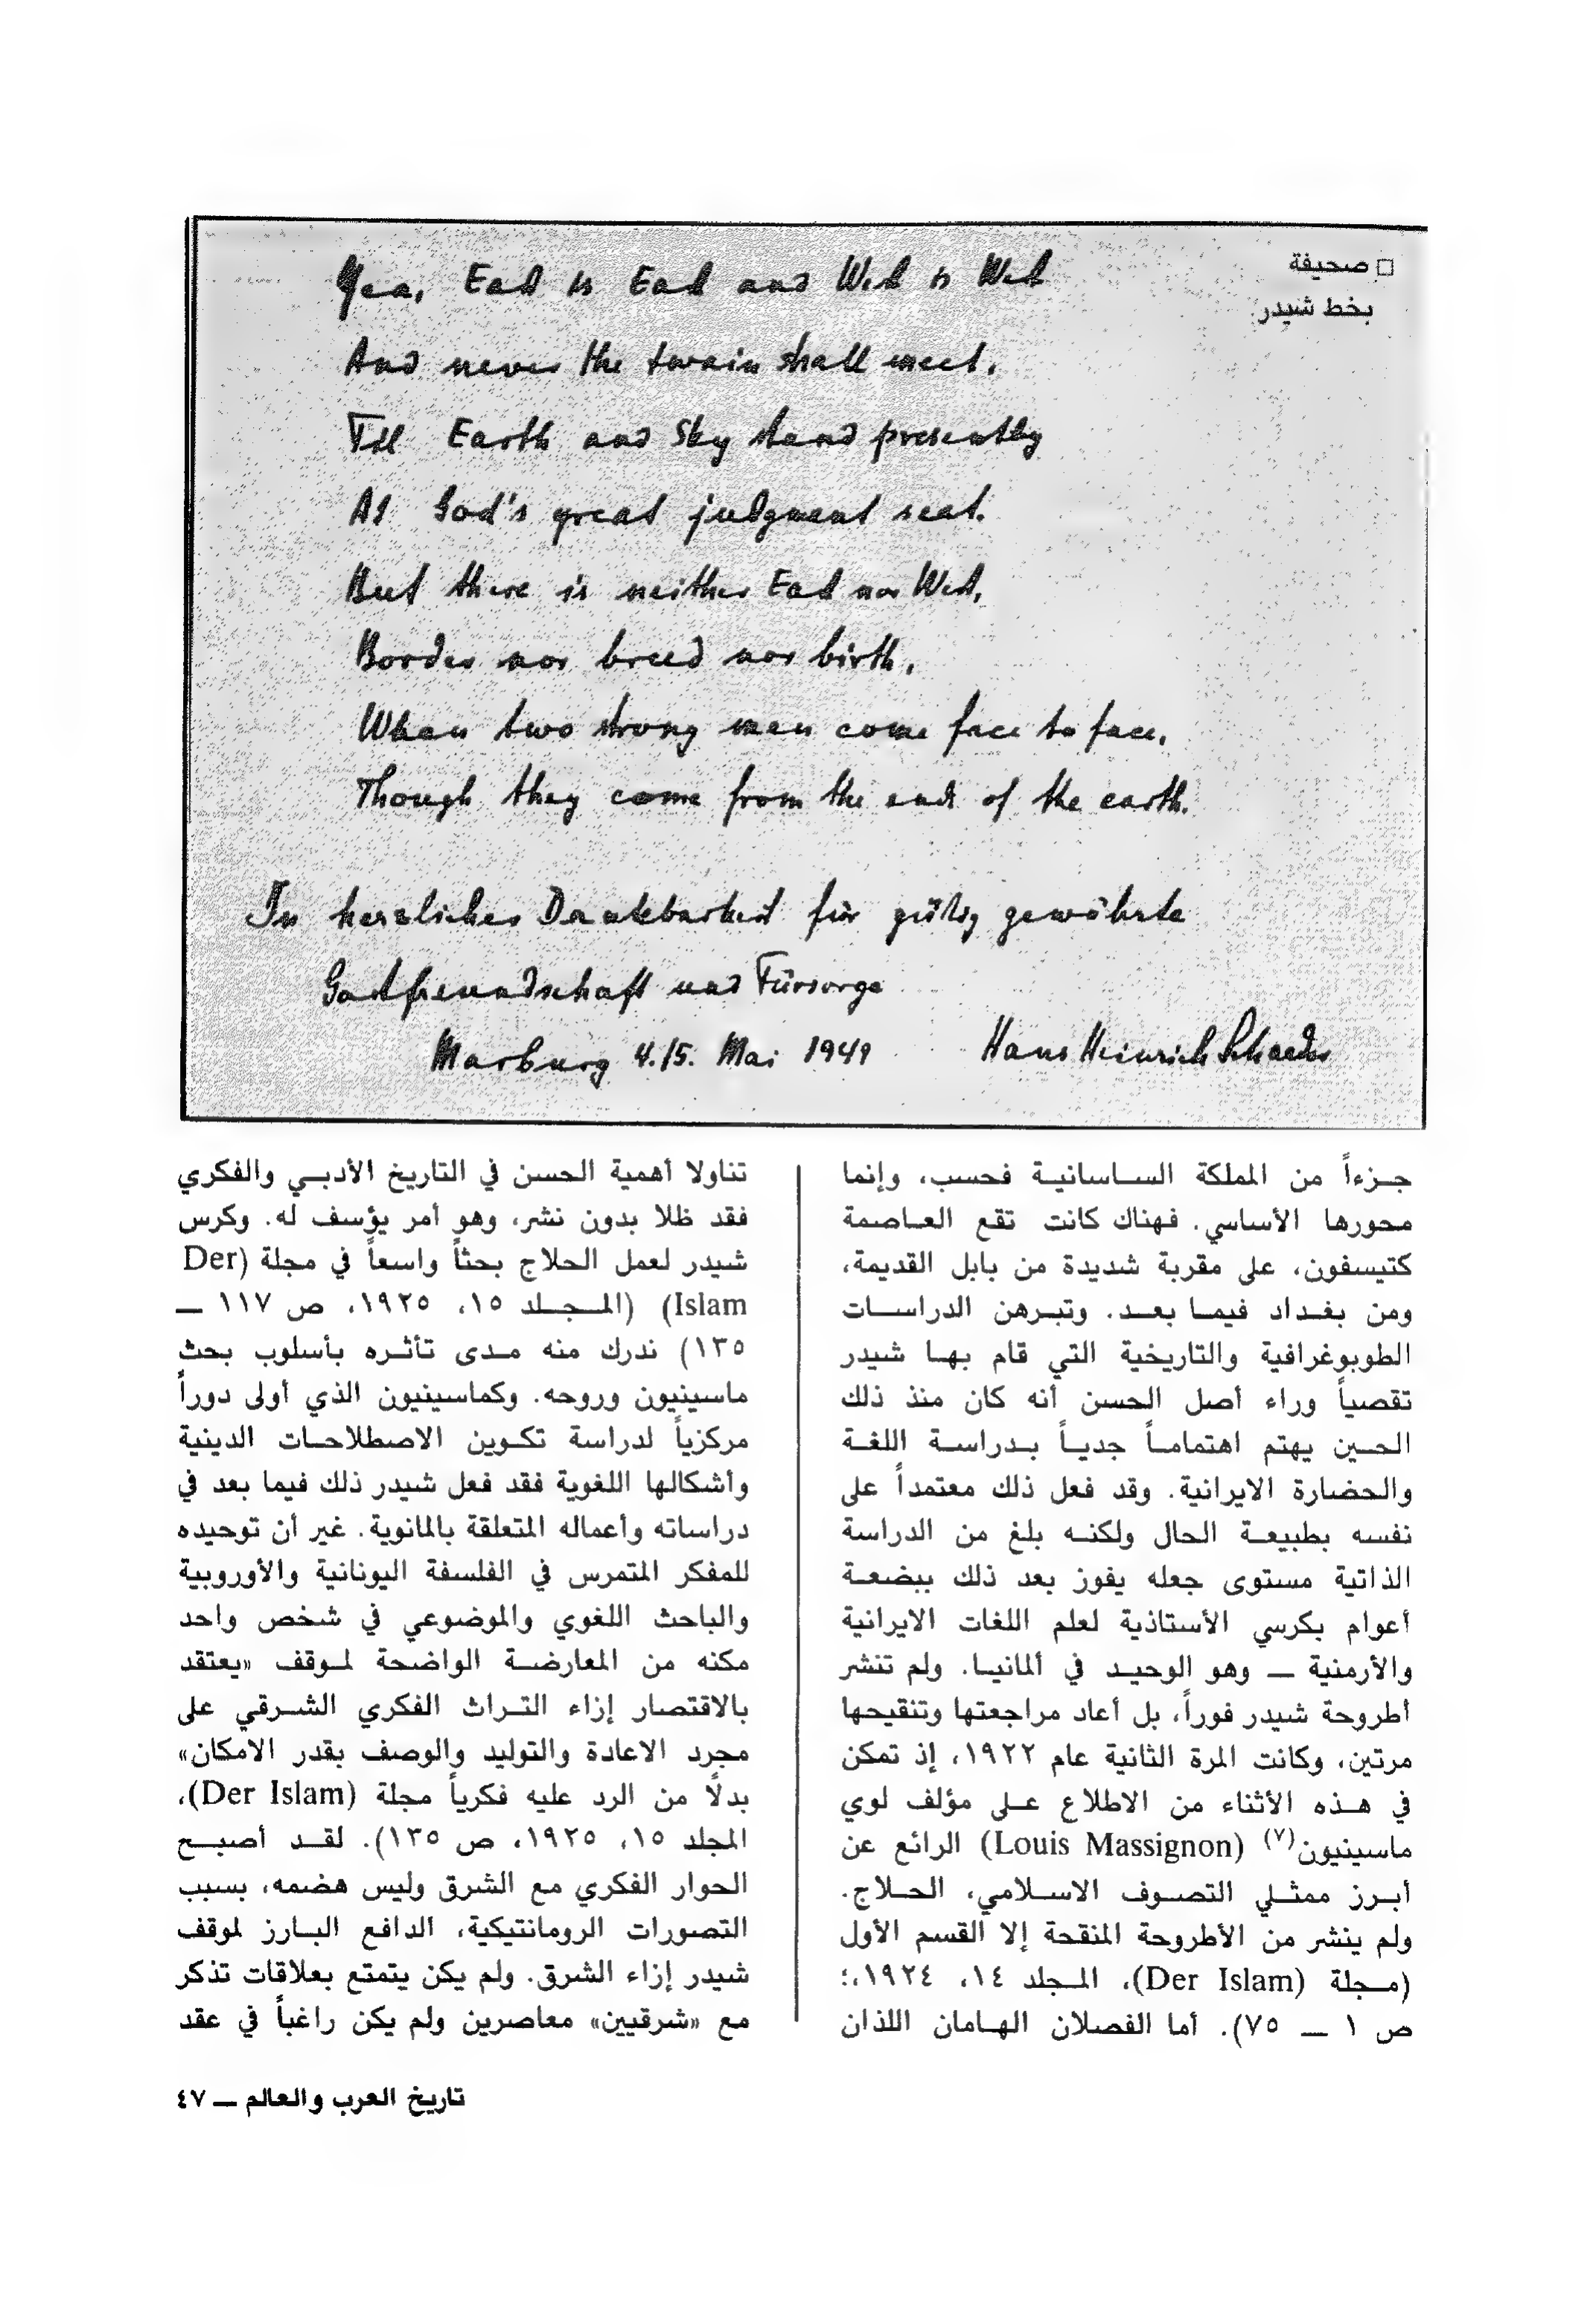 □ صحيفة
بخط شيدر
Yea, East is East and West is West
And never the twain shall meet,
Till Earth and Sky stand presently
At God's great judgment seat.
But there is neither East nor West,
Border nor breed nor birth,
When two strong men come face to face,
Though they come from the ends of the earth.
In herzlicher Dankbarkeit für gütig gewährte
Gastfreundschaft und Fürsorge
Marburg 4./5. Mai 1949 Hans Heinrich Schaeder
جـزءاً من المملكة الساسانية فحسب، وإنما
محورها الأساسي. فهناك كانت تقع العاصمة
كتيسفون، على مقربة شديدة من بابل القديمة،
ومن بغداد فيما بعد. وتبرهن الدراسات
الطوبوغرافية والتاريخية التي قام بها شيدر
تقصياً وراء أصل الحسن أنه كان منذ ذلك
الحين يهتم اهتماماً جدياً بدراسة اللغة
والحضارة الايرانية. وقد فعل ذلك معتمداً على
نفسه بطبيعة الحال ولكنه بلغ من الدراسة
الذاتية مستوى جعله يفوز بعد ذلك ببضعة
أعوام بكرسي الأستاذية لعلم اللغات الايرانية
والأرمنية — وهو الوحيد في ألمانيا. ولم تنشر
أطروحة شيدر فوراً، بل أعاد مراجعتها وتنقيحها
مرتين، وكانت المرة الثانية عام ١٩٢٢، إذ تمكن
في هذه الأثناء من الاطلاع على مؤلف لوي
ماسينيون(٧) (Louis Massignon) الرائع عن
أبرز ممثلي التصوف الاسلامي، الحلاج.
ولم ينشر من الأطروحة المنقحة إلا القسم الأول
(مجلة (Der Islam)، المجلد ١٤، ١٩٢٤،؛
ص ١ — ٧٥). أما الفصلان الهامان اللذان
تناولا أهمية الحسن في التاريخ الأدبي والفكري
فقد ظلا بدون نشر، وهو أمر يؤسف له. وكرس
شيدر لعمل الحلاج بحثاً واسعاً في مجلة (Der
Islam) (المجلد ١٥، ١٩٢٥، ص ١١٧ —
١٣٥) ندرك منه مدى تأثره بأسلوب بحث
ماسينيون وروحه. وكماسينيون الذي أولى دوراً
مركزياً لدراسة تكوين الاصطلاحات الدينية
وأشكالها اللغوية فقد فعل شيدر ذلك فيما بعد في
دراساته وأعماله المتعلقة بالمانوية. غير أن توحيده
للمفكر المتمرس في الفلسفة اليونانية والأوروبية
والباحث اللغوي والموضوعي في شخص واحد
مكنه من المعارضة الواضحة لموقف «يعتقد
بالاقتصار إزاء التراث الفكري الشرقي على
مجرد الاعادة والتوليد والوصف بقدر الامكان»
بدلًا من الرد عليه فكرياً مجلة (Der Islam)،
المجلد ١٥، ١٩٢٥، ص ١٣٥). لقد أصبح
الحوار الفكري مع الشرق وليس هضمه، بسبب
التصورات الرومانتيكية، الدافع البارز لموقف
شيدر إزاء الشرق. ولم يكن يتمتع بعلاقات تذكر
مع «شرقيين» معاصرين ولم يكن راغباً في عقد
تاريخ العرب والعالم — ٤٧